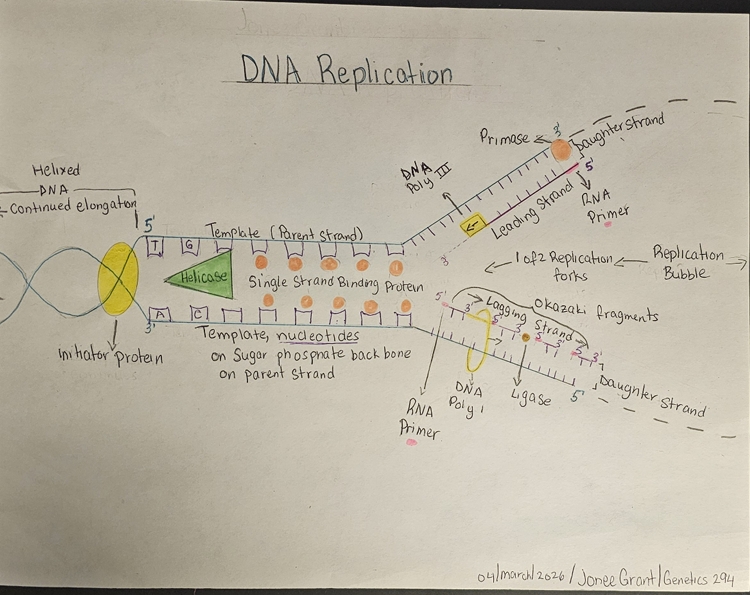 DNA Replication
Helixed
DNA
Continued elongation
5'
Template (Parent Strand)
T
G
Helicase
Single Strand Binding Protein
A
C
3'
Template, nucleotides
on Sugar phosphate backbone
on parent strand
Initiator protein
DNA
Poly III
Primase
3'
Daughter strand
5'
Leading Strand
RNA
Primer
3'
1 of 2 Replication
forks
Replication
Bubble
Okazaki fragments
Lagging Strand
5'
3'
5'
3'
5'
3'
5'
3'
RNA
Primer
DNA
Poly I
Ligase
5'
Daughter Strand
04/march/2026/Jonee Grant/Genetics 294